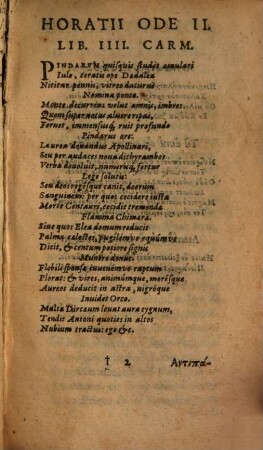 HORATII ODE II.
LIB. IIII. CARM.
PINDARUM quisquis studet aemulari
Iule, ceratis ope Daedalea
Nititur pennis, vitreo daturus
Nomina ponto.
Monte decurrens velut amnis, imbres
Quem super notas aluere ripas,
Fervet, immensusq́ ruit profundo
Pindarus ore:
Laurea donandus Apollinari,
Seu per audaces nova dithyrambos
Verba devoluit, numerisq́ fertur
Lege solutis:
Seu deos regésque canit, deorum
Sanguinem: per quos cecidere iusta
Morte Centauri, cecidit tremenda
Flamma Chimaerae.
Sive quos Elea domum reducit
Palma caelestes, pugilémve equúmve
Dicit, & centum potiore signis
Munere donat.
Flebili sponsae iuvenémve raptum
Plorat: & vires, animúmque, morésque
Aureos deducit in astra, nigróque
Invidet Orco.
Multa Dircaeum levat aura cygnum,
Tendit Antoni quoties in altos
Nubium tractus: ego &c.
† 2 Αντιπά-